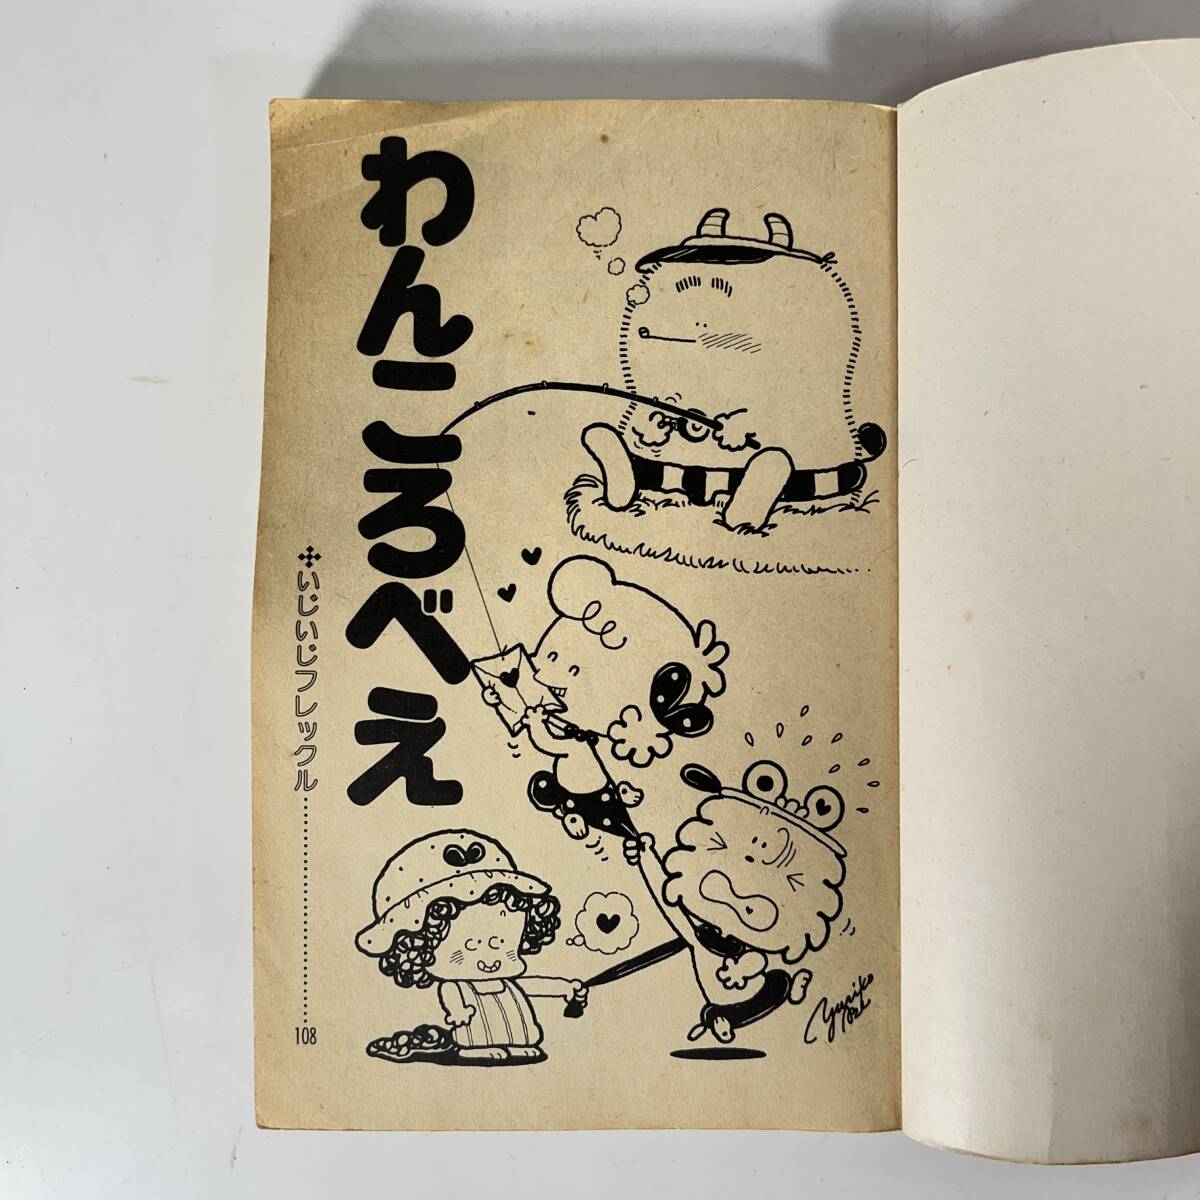 わんころべえ
いじいじフレックル
108
Yuriko